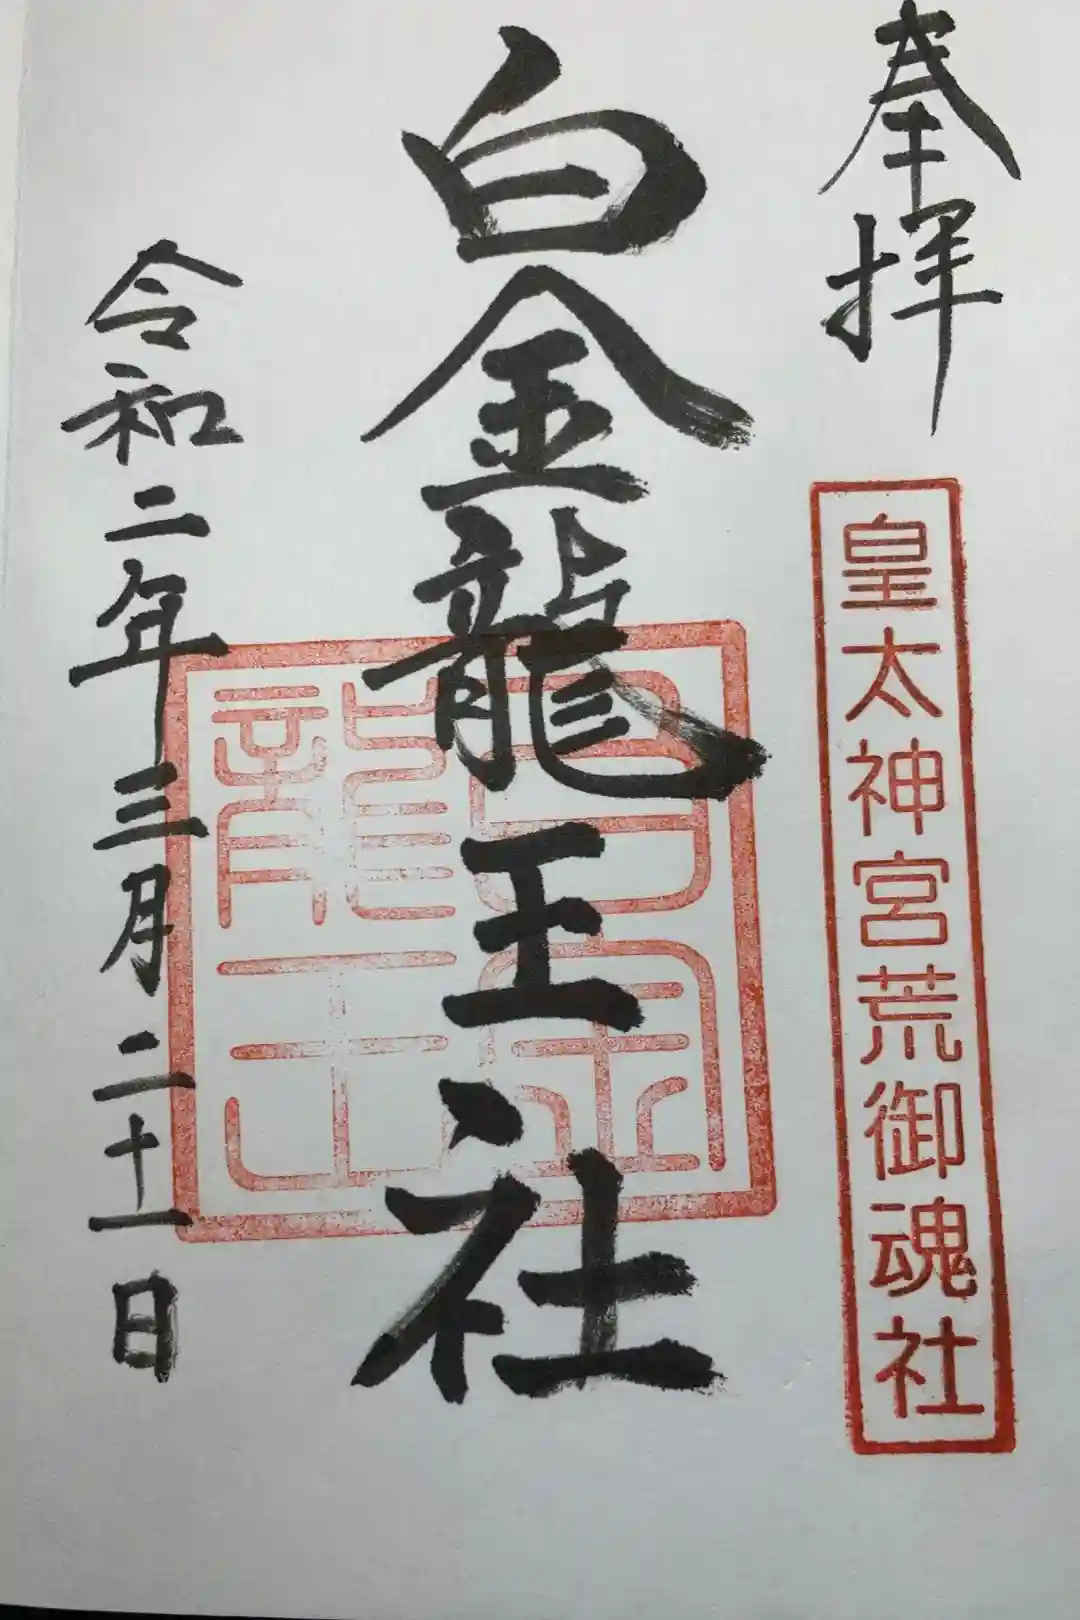 奉拝
皇太神宮荒御魂社
白金龍王社
白金
龍王
令和二年三月二十一日